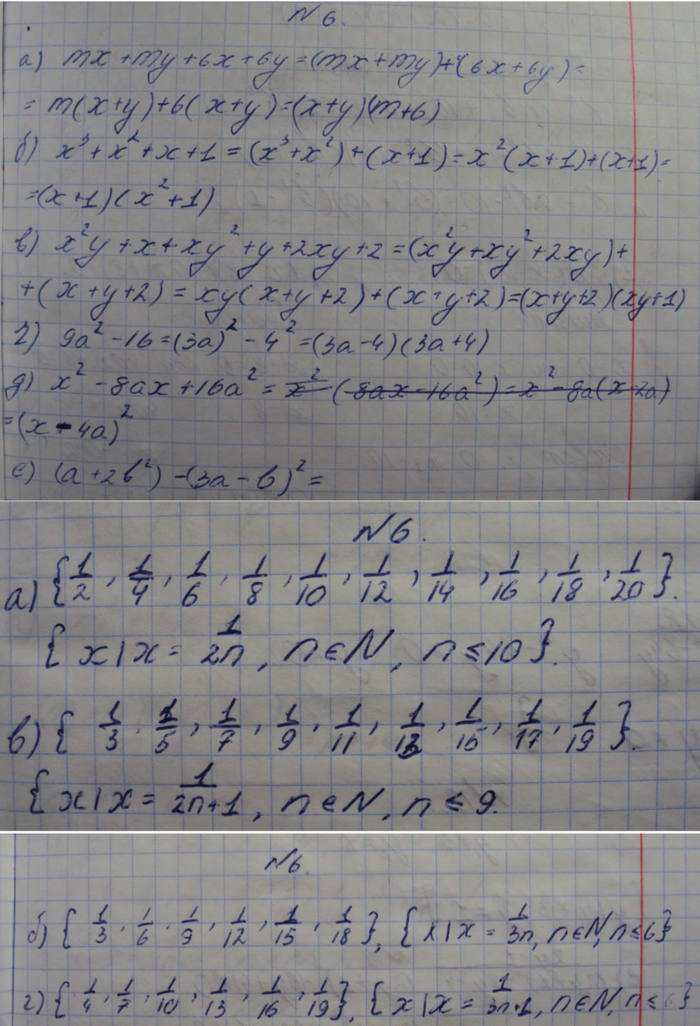 N 6.
а) mx + my + 6x + 6y = (mx + my) + (6x + 6y) =
= m(x+y) + 6(x+y) = (x+y)(m+6)
б) x³ + x² + x + 1 = (x³ + x²) + (x+1) = x²(x+1) + (x+1) =
= (x+1)(x²+1)
в) x²y + x + xy² + y + 2xy + 2 = (x²y + xy² + 2xy) +
+ (x + y + 2) = xy(x + y + 2) + (x + y + 2) = (x+y+2)(xy+1)
г) 9a² - 16 = (3a)² - 4² = (3a - 4)(3a + 4)
д) x² - 8ax + 16a² = x² - (8ax - 16a²) = x² - 8a(x - 2a)
= (x - 4a)²
е) (a + 2b²) - (3a - b)² =
N6.
а) {1/2, 1/4, 1/6, 1/8, 1/10, 1/12, 1/14, 1/16, 1/18, 1/20}.
{x | x = 1/2n, n ∈ N, n ≤ 10}.
в) {1/3, 1/5, 1/7, 1/9, 1/11, 1/13, 1/15, 1/17, 1/19}.
{x | x = 1/2n+1, n ∈ N, n ≤ 9.
N6.
б) {1/3, 1/6, 1/9, 1/12, 1/15, 1/18}, {x | x = 1/3n, n ∈ N, n ≤ 6}
г) {1/4, 1/7, 1/10, 1/13, 1/16, 1/19}, {x | x = 1/3n+1, n ∈ N, n ≤ 6}